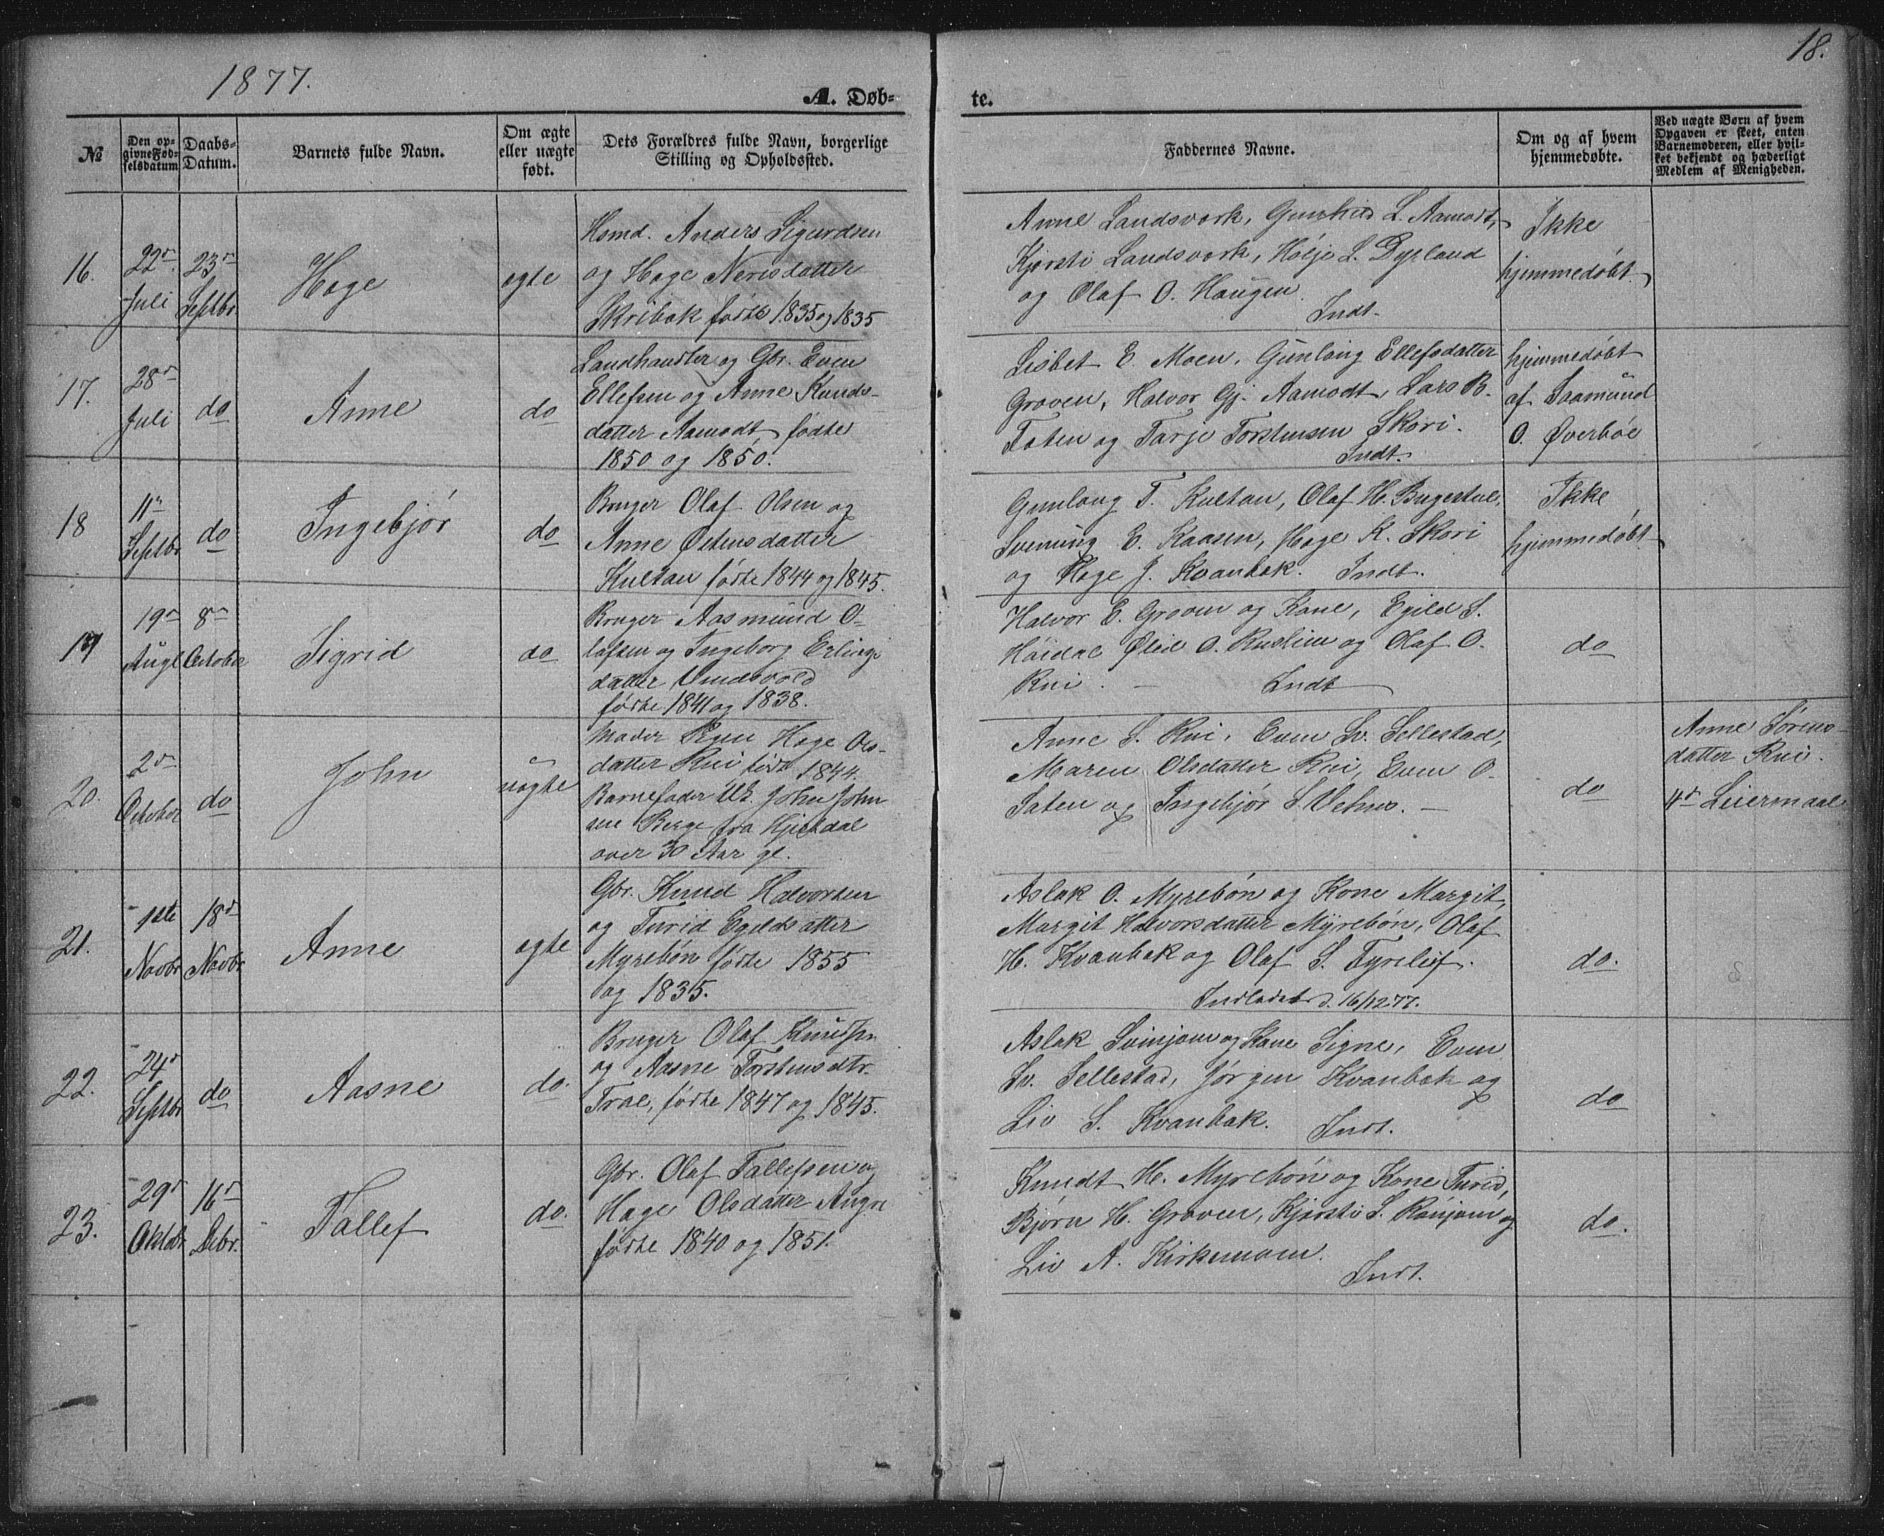 1877.
18.
A. Døb-
te.
№
Den op-
givne Fød-
selsdatum
Daabs-
Datum.
Barnets fulde Navn.
Om ægte
eller uægte
født.
Dets Forældres fulde Navn, borgerlige
Stilling og Opholdssted.
Faddernes Navne.
Om og af hvem
hjemmedøbte.
Ved uægte Børn af hvem
Opgaven er skeet, enten
Barnemoderen, eller hvil-
ket bekjendt og hæderligt
Medlem af Menigheden.
16.
22de
Juli
23de
Septbr
Hage
ægte
Hsmd. Anders Sigurdsen
og Hage Nerisdatter
Skribak fødte 1835 og 1835
Anne Landsverk, Gunhild L. Aamodt,
Kjersti Landsverk, Høije L. Dyrland
og Olaf O. Haugen.
Indt.
Ikke
hjemmedøbt.
17.
28de
Juli
do
Anne
do
Landhandler og Gbr. Even
Ellefsen og Anne Knuds-
datter Aamodt fødte
1850 og 1850.
Lisbet E. Moen, Gunlaug Ellefsdatter
Groven, Halvor Gj. Aamodt, Lars B.
Taten og Tarje Torstensen Skori.
Indt.
hjemmedøbt
af Saamund
O. Øverbøe
18
11te
Septbr
do
Ingebjør
do
Bruger Olaf Olsen og
Anne Østensdatter
Kultan fødte 1844 og 1845.
Gunlaug T. Kultan, Olaf H. Bugestul,
Svenung E. Kaasen, Hage K. Skori
og Hage J. Kvanbak. Indt.
Ikke
hjemmedøbt
19
19de
Augt
8de
October
Sigrid
do
Bruger Aasmund O-
lafsen og Ingeborg Erlings
datter Vindsvold
fødte 1841 og 1838.
Halvor E. Groven og Kone, Egild S.
Høidal Øлid O. Ruslien og Olaf O.
Rui. — Indt
do
20.
2de
October
do
John
uægte
Moder Pigen Hage Ols-
datter Rui født 1844.
Barnefader Uk. John John
sen Berge fra Hjertdal
over 30 Aar gl.
Anne S. Rui, Even Sv. Sellestad,
Maren Olsdatter Rui, Even O.
Taten og Ingebjør S. Vehus. —
do
Anne Sørens-
datter Rui.
4de Leiermaal
21.
1ste
Novbr
18de
Novbr.
Anne
ægte
Gbr. Knud Halvorsen
og Turid Egildsdatter
Myrebøn fødte 1855
og 1835.
Aslak O. Myrebøn og Kone Margit,
Margit Halvorsdatter Myrebøn, Olaf
H. Kvanbak og Olaf S. Tyrelif.
Indladet d. 16/12 77.
do.
22.
24de
Septbr
do
Aasne
do.
Bruger Olaf Knudsen
og Aasne Torstensdtr.
Trae, fødte 1847 og 1845.
Aslak Svinjom og Kone Signe, Even
Sv. Sellestad, Jørgen Kvanbak og
Liv S. Kvanbak. Indt.
do
23.
29de
Oktbr
16de
Debr.
Tallef
do.
Gbr. Olaf Tallefsen og
Hage Olsdatter Augne
fødte 1840 og 1851.
Knudt H. Myrebøn og Kone Turid,
Bjørn H. Groven, Kjersti S. Rønjom og
Liv A. Kirkemoen.
Indt.
do.